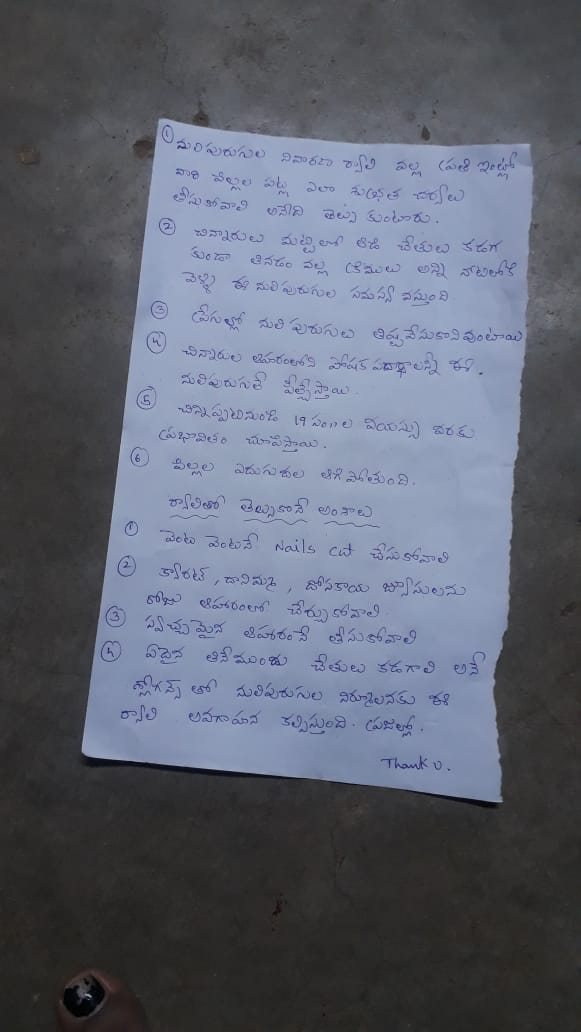 ① నులిపురుగుల నివారణ ర్యాలి వల్ల ప్రతి ఇంట్లో
వారి పిల్లల పట్ల ఎలా శుభ్రత చర్యలు
తీసుకోవాలి అనేది తెల్సు కుంటారు.
② చిన్నారులు మట్టిలో ఆడి చేతులు కడగ
కుండా తినడం వల్ల క్రిములు అన్ని నోటిలోకి
వెళ్ళి ఈ నులిపురుగుల సమస్య వస్తుంది
③ ప్రేగుల్లో నులి పురుగులు తిష్టవేసుకొనివుంటాయి
4 చిన్నారుల ఆహారంలోని పోషక పదార్థాలన్ని ఈ.
నులిపురుగులే పీల్చేస్తాయి.
⑤ చిన్నప్పటినుండి 19 సం॥ల వయస్సు వరకు
ప్రభావితం చూపిస్తాయి.
⑥ పిల్లల ఎదుగుదల ఆగి పోతుంది.
ర్యాలితో తెల్సుకొనే అంశాలు
① వెంట వెంటనే Nails cut చేసుకోవాలి
② క్యారట్, దానిమ్మ, దోసకాయ జ్యూసులను
రోజు ఆహారంలో చేర్చుకోవాలి.
③ స్వచ్ఛమైన ఆహారంనే తీసుకోవాలి
4 ఏదైన తినేముందు చేతులు కడగాలి అనే
శ్లోగన్స్ తో నులిపురుగుల నిర్మూలనకు ఈ
ర్యాలి అవగాహన కల్పిస్తుంది. ప్రజల్లో.
Thank U.